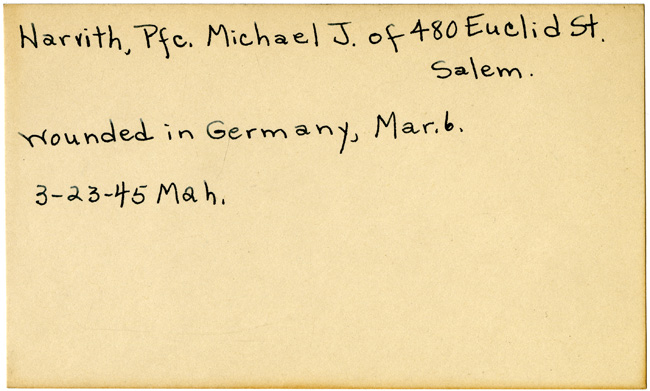 Narvith, Pfc. Michael J. of 480 Euclid St.
Salem.
wounded in Germany, Mar. 6.
3-23-45 Mah.